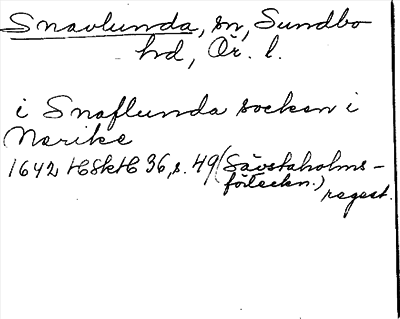 Snavlunda, sn, Sundbo
hd, Ör. l.
i Snaflunda socken i
Nerike
1642 HSkH 36, s. 49 (Säfstaholms-
förteckn.)
regest.